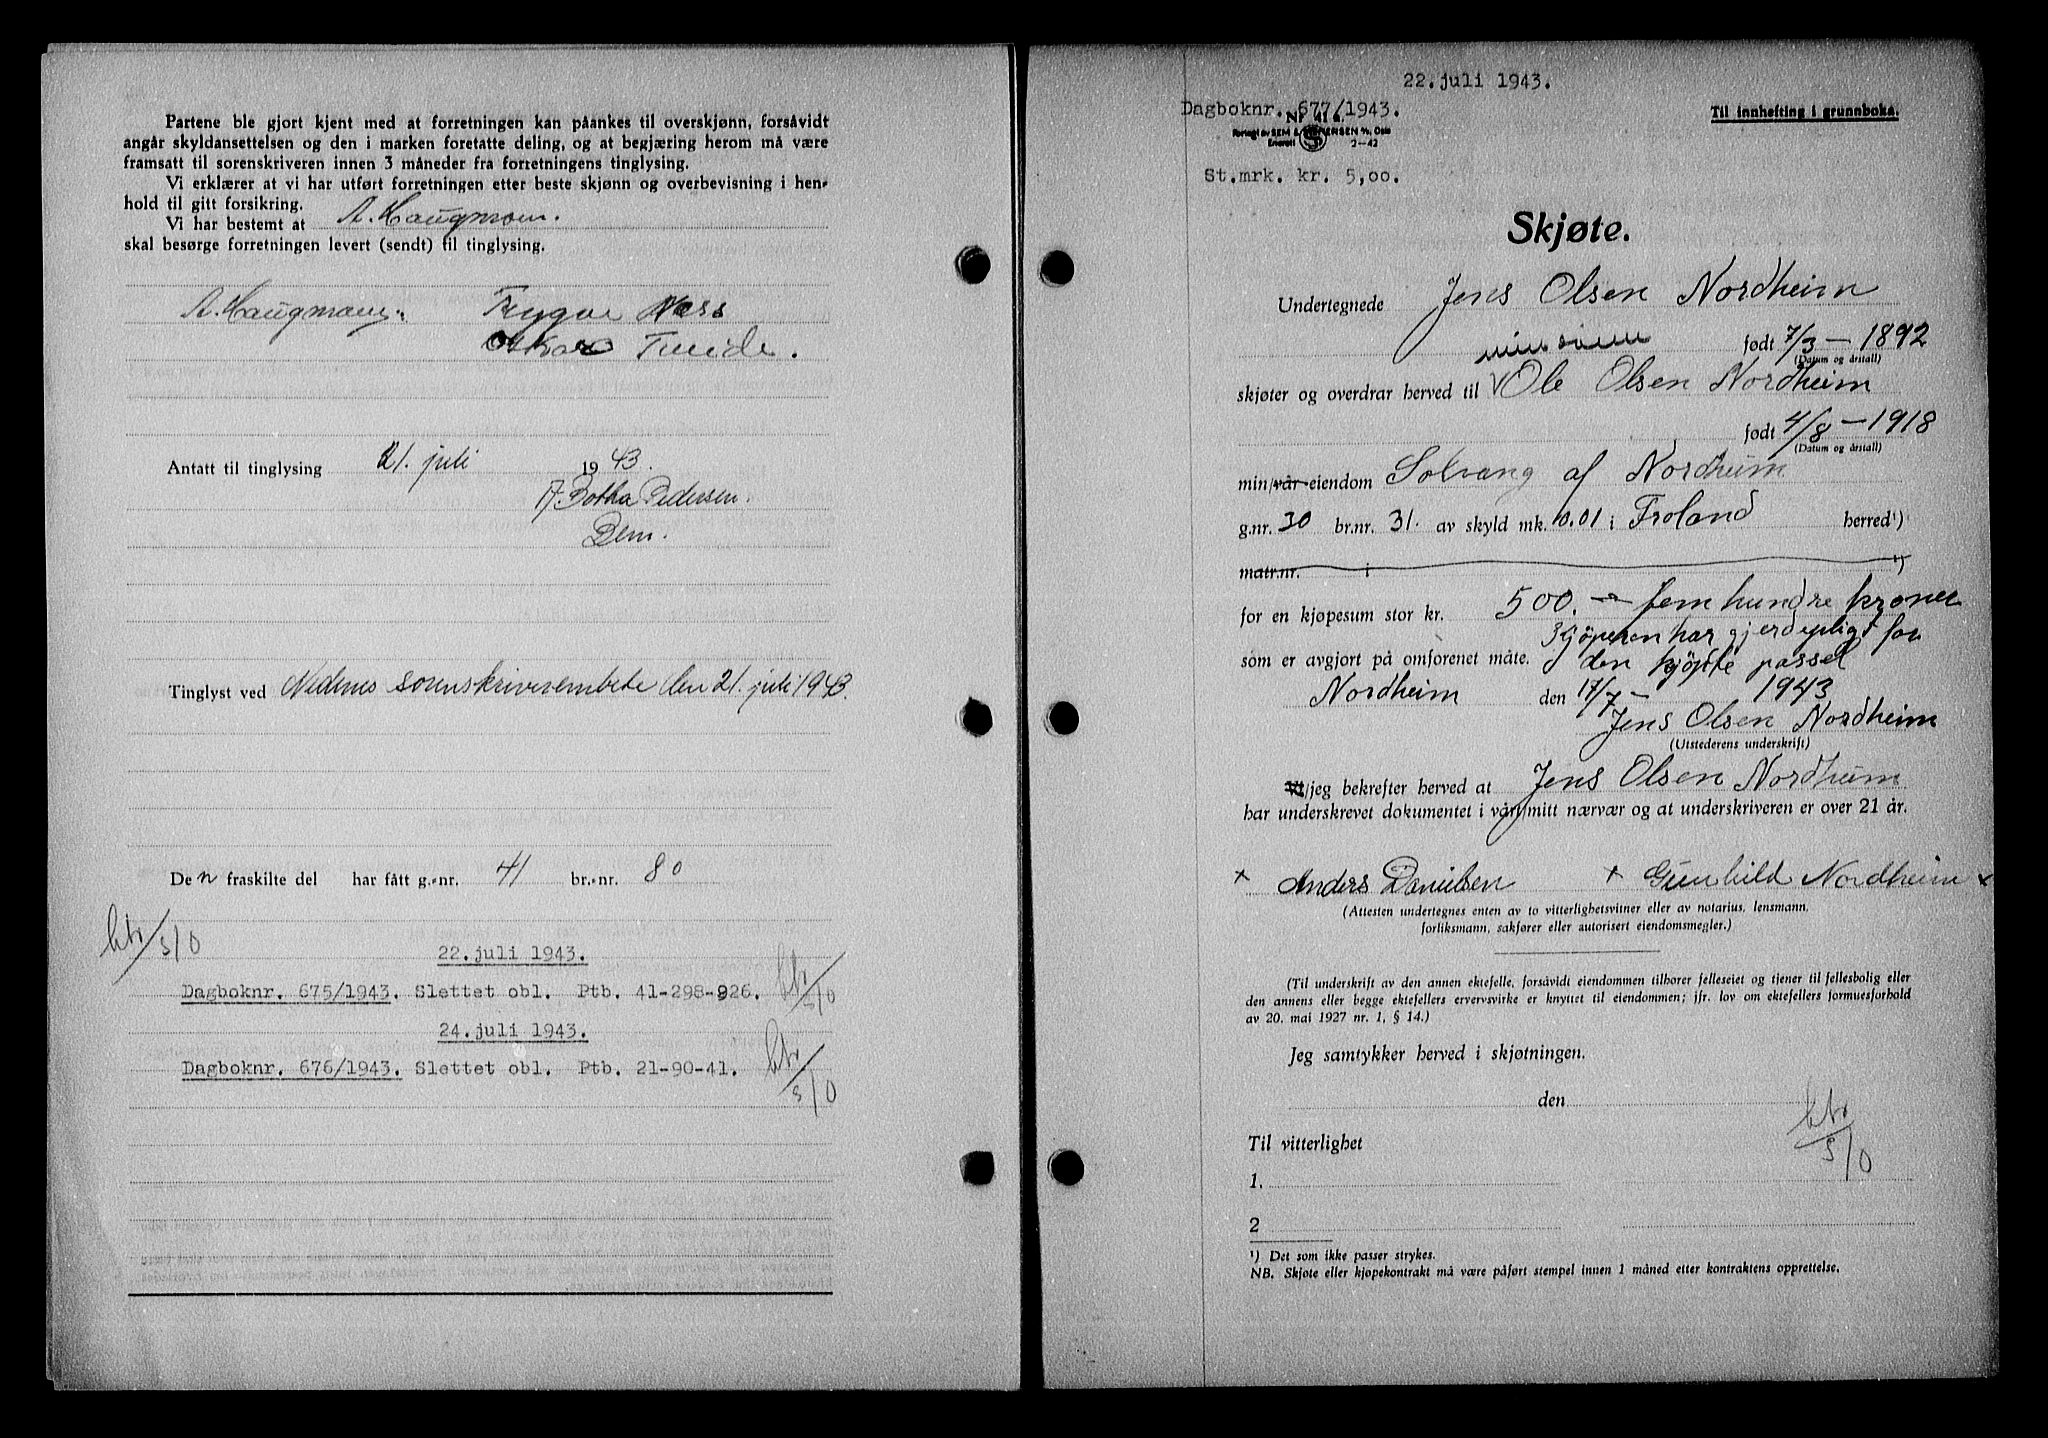 Partene ble gjort kjent med at forretningen kan påankes til overskjønn, forsåvidt
angår skyldansettelsen og den i marken foretatte deling, og at begjæring herom må være
framsatt til sorenskriveren innen 3 måneder fra forretningens tinglysing.
Vi erklærer at vi har utført forretningen etter beste skjønn og overbevisning i hen-
hold til gitt forsikring.
Vi har bestemt at A. Haugmoen.
skal besørge forretningen levert (sendt) til tinglysing.
A. Haugmoen. Trygve Næss
Oskar Tveide.
Antatt til tinglysing 21. juli 1943.
A. Botha Pedersen.
Dem.
Tinglyst ved Nedenes sorenskriverembete den 21. juli 1943.
Den fraskilte del har fått g.-nr. 41 br.-nr. 80
22. juli 1943.
Dagboknr. 675/1943. Slettet obl. Ptb. 41-298-926.
24. juli 1943.
Dagboknr. 676/1943. Slettet obl. Ptb. 21-90-41.
22. juli 1943.
Dagboknr. 677/1943.
Til innhefting i grunnboka.
Nr. 41 a.
Forlagt av SEM & STENERSEN A/s, Oslo
Enerett S 2-42
St.mrk. kr. 5,00.
Skjøte.
Undertegnede Jens Olsen Nordheim
født 7/3 - 1892
(Datum og årstall)
min sönn
skjøter og overdrar herved til Ole Olsen Nordheim
født 4/8 - 1918
(Datum og årstall)
min/vår eiendom Solvang af Nordheim
g.nr. 30 br.nr. 31. av skyld mk. 0.01 i Froland herred¹)
matr.nr. i ¹)
for en kjøpesum stor kr. 500. - fem hundre kroner
Kjöperen har gjerdepligt for
som er avgjort på omforenet måte. den kjöpte passel
Nordheim den 17/7 - 1943
Jens Olsen Nordheim
(Utstederens underskrift)
Vi/jeg bekrefter herved at Jens Olsen Nordheim
har underskrevet dokumentet i vårt/mitt nærvær og at underskriveren er over 21 år.
x Anders Danielsen x Gunhild Nordheim x
(Attesten undertegnes enten av to vitterlighetsvitner eller av notarius, lensmann,
forliksmann, sakfører eller autorisert eiendomsmegler.)
(Til underskrift av den annen ektefelle, forsåvidt eiendommen tilhører felleseiet og tjener til fellesbolig eller
den annens eller begge ektefellers ervervsvirke er knyttet til eiendommen; jfr. lov om ektefellers formuesforhold
av 20. mai 1927 nr. 1, § 14.)
Jeg samtykker herved i skjøtningen.
den
Til vitterlighet
1.
2
¹) Det som ikke passer strykes.
NB. Skjøte eller kjøpekontrakt må være påført stempel innen 1 måned etter kontraktens opprettelse.